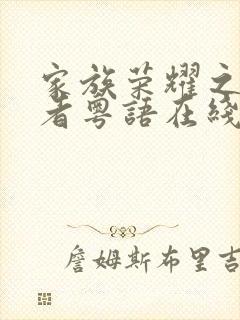 家族荣耀之
者粤語在綫
詹姆斯布里吉